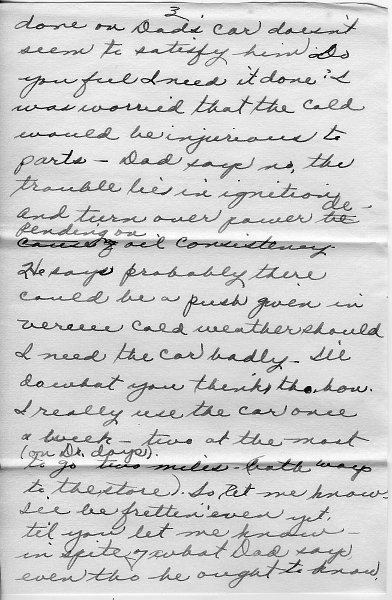 3
done on Dad's car doesn't
seem to satisfy him. Do
you feel I need it done? I
was worried that the cold
would be injurious to
parts - Dad says no, the
trouble lies in ignition
and turn over power de-
pending on
oil consistency.
He says probably there
could be a push given in
vereeee cold weather should
I need the car badly - I'll
do what you think, tho. hon.
I really use the car once
a week - two at the most
(on Dr. days).
to go two miles - (both ways
to the store). So let me know -
I'll be frettin' even yet,
til you let me know -
in spite of what Dad says
even tho he ought to know.